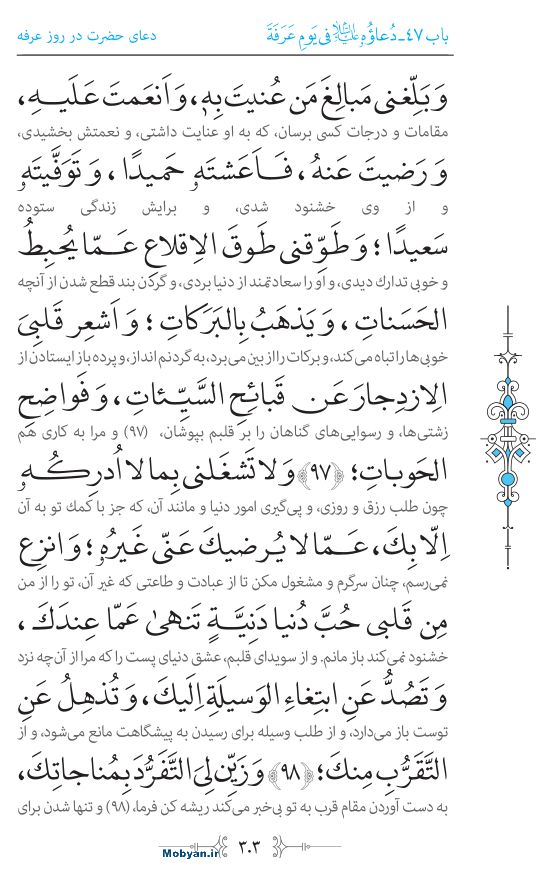 باب ٤٧ـ دُعاؤُهُ علیه‌السلام فی یَومِ عَرَفَةَ
دعای حضرت در روز عرفه
وَ بَلِّغنی مَبالِغَ مَن عُنیتَ بِهِ، وَ اَنعَمتَ عَلَیهِ،
مقامات و درجات کسی برسان، که به او عنایت داشتی، و نعمتش بخشیدی،
وَ رَضیتَ عَنهُ، فَاَعَشتَهُ حَمیدًا، وَ تَوَفَّیتَهُ
و از وی خشنود شدی، و برایش زندگی ستوده
سَعیدًا؛ وَ طَوِّقنی طَوقَ الاِقلاعِ عَمّا یُحبِطُ
و خوبی تدارک دیدی، و او را سعادتمند از دنیا بردی، و گردن بند قطع شدن از آنچه
الحَسَناتِ، وَ یَذهَبُ بِالبَرَکاتِ؛ وَ اَشعِر قَلبِیَ
خوبی‌ها را تباه می‌کند، و برکات را از بین می‌برد، به گردنم انداز، و پرده باز ایستادن از
الاِزدِجارَ عَن قَبائِحِ السَّیِّئاتِ، وَ فَواضِحِ
زشتی‌ها، و رسوایی‌های گناهان را بر قلبم بپوشان، (٩٧) و مرا به کاری هم
الحَوباتِ؛ ﴿٩٧﴾ وَ لا تَشغَلنی بِما لا اُدرِکُهُ
چون طلب رزق و روزی، و پی‌گیری امور دنیا و مانند آن، که جز با کمک تو به آن
اِلّا بِکَ، عَمّا لا یُرضیکَ عَنّی غَیرُهُ؛ وَ انزِع
نمی‌رسم، چنان سرگرم و مشغول مکن تا از عبادت و طاعتی که غیر آن، تو را از من
مِن قَلبی حُبَّ دُنیا دَنِیَّةٍ تَنهیٰ عَمّا عِندَکَ،
خشنود نمی‌کند باز مانم. و از سویدای قلبم، عشق دنیای پست را که مرا از آن‌چه نزد
وَ تَصُدُّ عَنِ ابتِغاءِ الوَسیلَةِ اِلَیکَ، وَ تُذهِلُ عَنِ
توست باز می‌دارد، و از طلب وسیله برای رسیدن به پیشگاهت مانع می‌شود، و از
التَّقَرُّبِ مِنکَ؛ ﴿٩٨﴾ وَ زَیِّن لِیَ التَّفَرُّدَ بِمُناجاتِکَ،
به دست آوردن مقام قرب به تو بی‌خبر می‌کند ریشه کن فرما، (٩٨) و تنها شدن برای
٣٠٣
Mobyan.ir